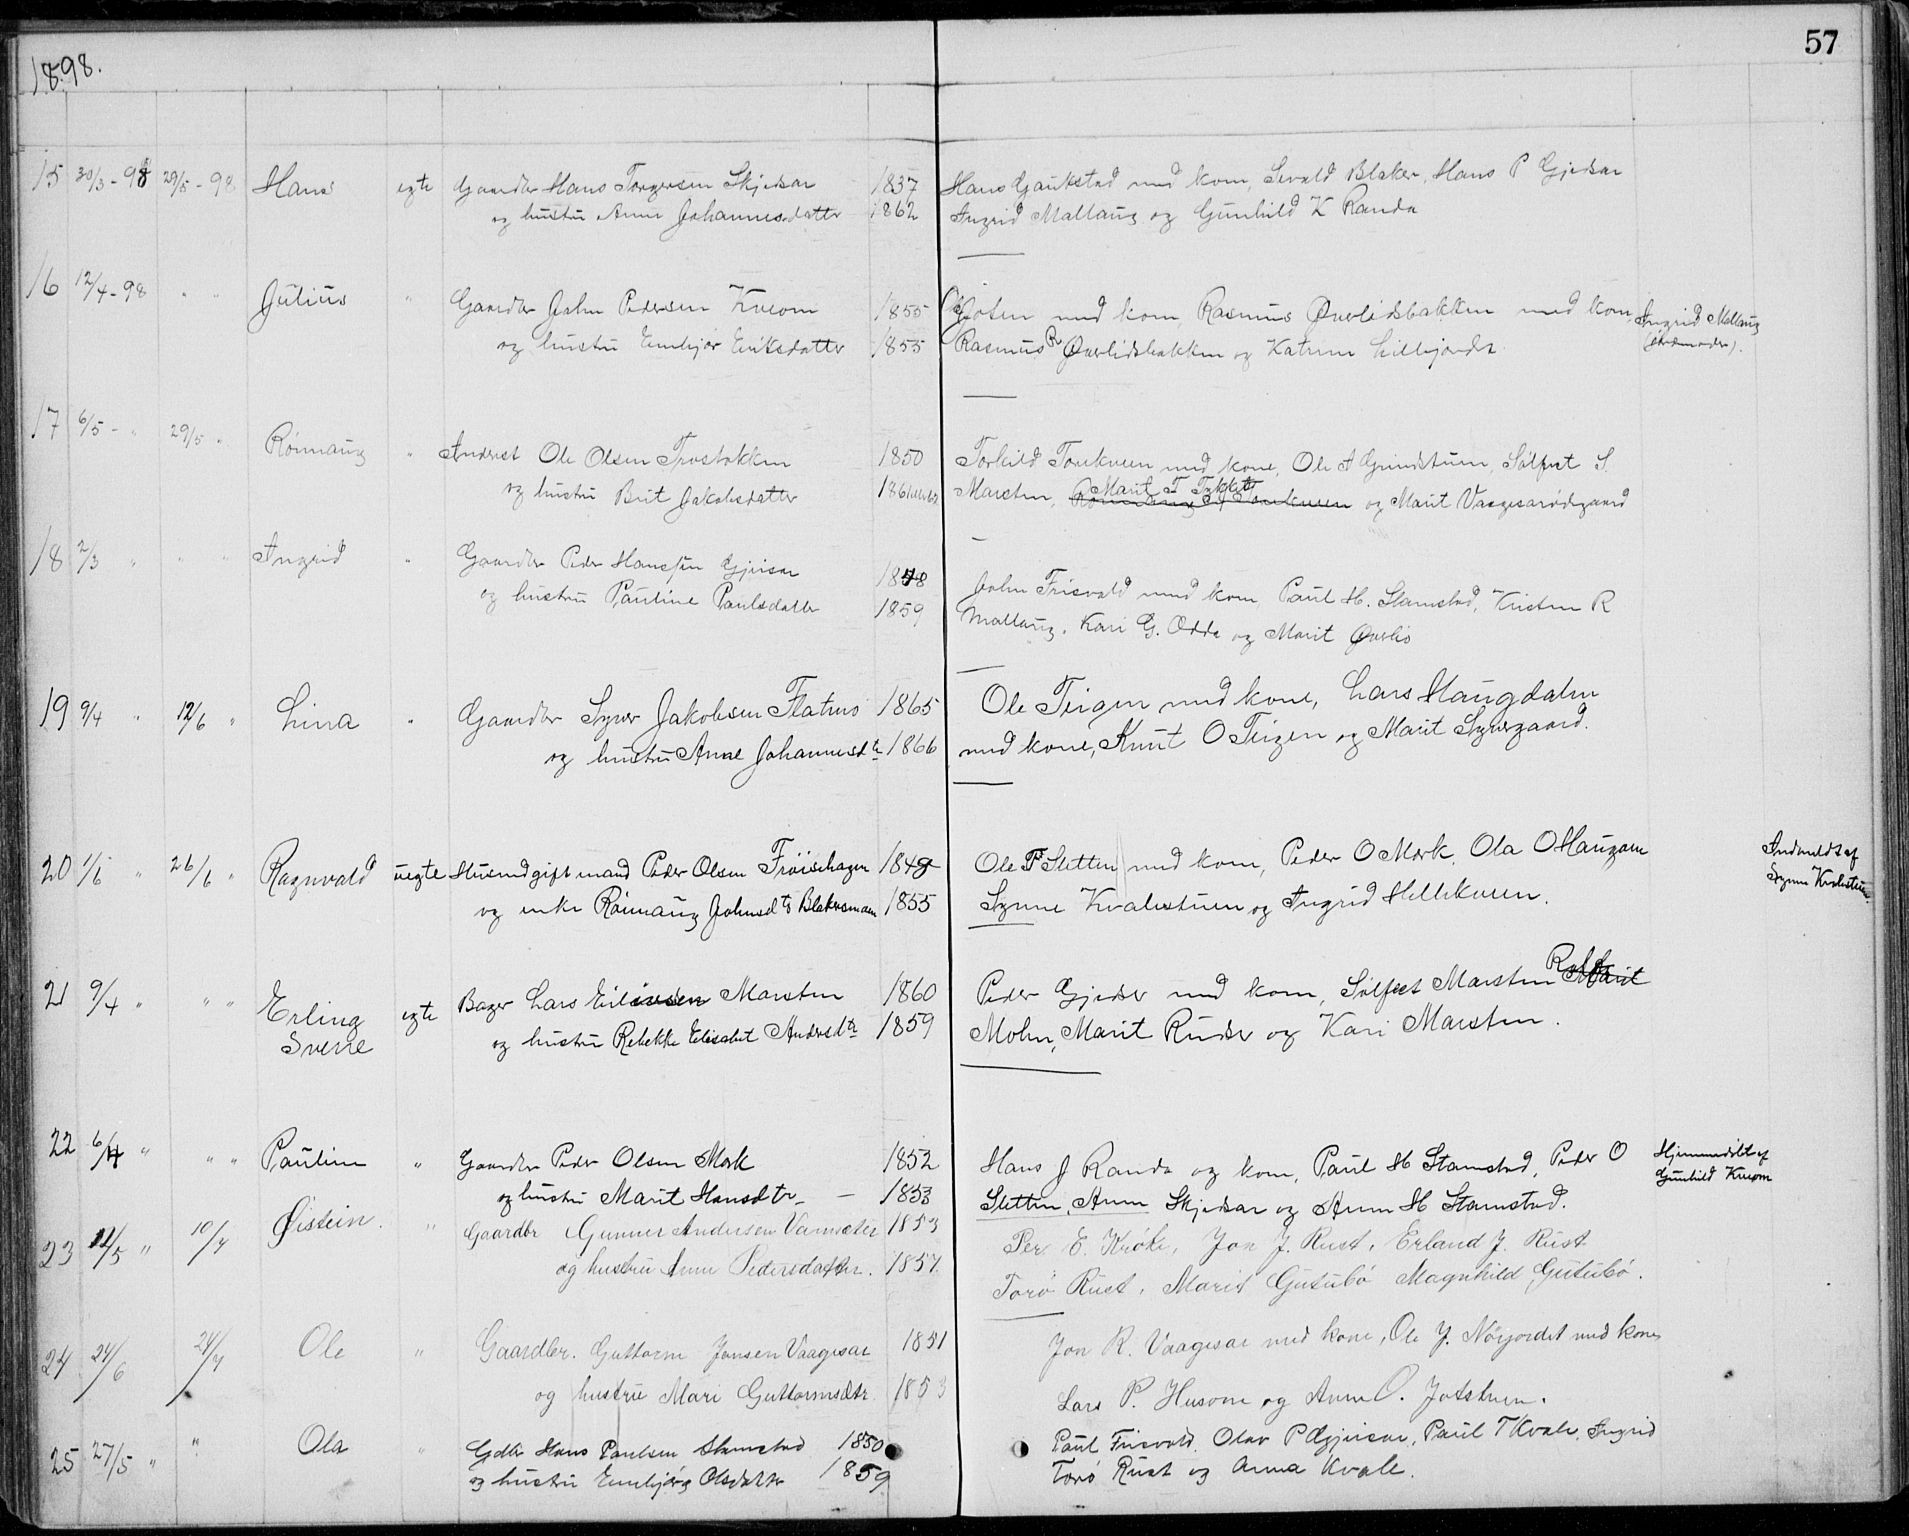 57
1898.
15 30/3-98 29/5-98 Hans egte Gaardbr Hans Torgersen Skjedsar 1837 Hans Gaukstad med kone, Sevald Blaker, Hans P Gjedsar
og hustru Anne Johannesdatter 1862 Ingrid Mallaug og Gunhild K Randa
16 12/4-98 " " Julius " Gaardbr John Pedersen Kveom 1855 med kone, Rasmus Øverlidsbakken med kone, Ingrid Mallaug
og hustru Embjør Eriksdatter 1855 Rasmus R Øverlidsbakken og Katrine Lillejordet (Jordmoder).
17 6/5 - " 29/5 " Rønnaug " Inderst Ole Olsen Trostakken 1850 Torkild Torekveen med kone, Ole A Grindstuen, Sølfest S.
og hustru Brit Jakobsdatter 1861 Marsten, Marit T og Marit Vaagesarødegaard
18 2/3 " " " Ingrid " Gaardbr Peder Hanssen Gjeisar 1848 John Frisvold med kone, Paul H. Stamstad, Kristen R
og hustru Pauline Paulsdatter 1859 Mallaug, Kari G. Odde og Marit Øverlid
19 9/4 " 12/6 " Lina " Gaardbr Syver Jakobsen Flatmo 1865 Ole Teigen med kone, Lars Haugdalen
og hustru Anne Johannesdtr 1866 med kone, Knut O Teigen og Marit Syvergaard.
20 1/6 " 26/6 " Ragnvald uegte Husmd gift mand Peder Olsen Frøisehagen 1848 Ole P Sletten med kone, Peder O Mork, Ola O Haugom Indmeldt af
og enke Rønnaug Johnsdtr Blakersmoen 1855 Synne Kvalestuen og Ingrid Hellekveen. Synne Kvalestuen.
21 9/4 " " " Erling egte Bager Lars Eilivsen Marsten 1860 Peder Gjedser med kone, Sølfest Marsten
Sverre og hustru Rebekke Elisabet Andersdtr 1859 Mohn, Marit Rudser og Kari Marsten.
22 6/4 " " " Pauline " Gaardbr Peder Olsen Mork 1852 Hans J Randa og kone, Paul H Stamstad, Peder O Hjemmedøbt af
og hustru Marit Hansdtr - 1853 Sletten, Anne Skjedsar og Anne H Stamstad. Gunhild Kveom
23 12/5 " 10/7 Øistein. " Gaardbr Gunner Andersen Vansæter 1853 Per E. Krøke, Jon J. Rust, Erland J. Rust
og hustru Anne Pedersdatter. 1857 Torø Rust, Marit Gutubø Magnhild Gutubø.
24 24/6 24/7 Ole " Gaardbr. Guttorm Jonsen Vaagesar 1851 Jon R. Vaagesar med kone, Ole J. Nørjordet med kone,
og hustru Mari Guttormsdtr 1853 Lars P. Husom og Anne O. Jotstuen.
25 27/5 " " Ola " Gdbr Hans Paulsen Stamstad 1850 Paul Frisvold, Olav P Gjeisar, Paul T Kvale, Ingrid
og hustru Embjørg Olsdatter 1859 Torø Rust og Anna Kvale.